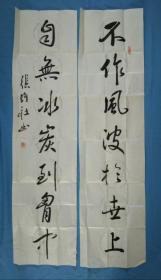 不作風波於世上
自無冰炭到胸中